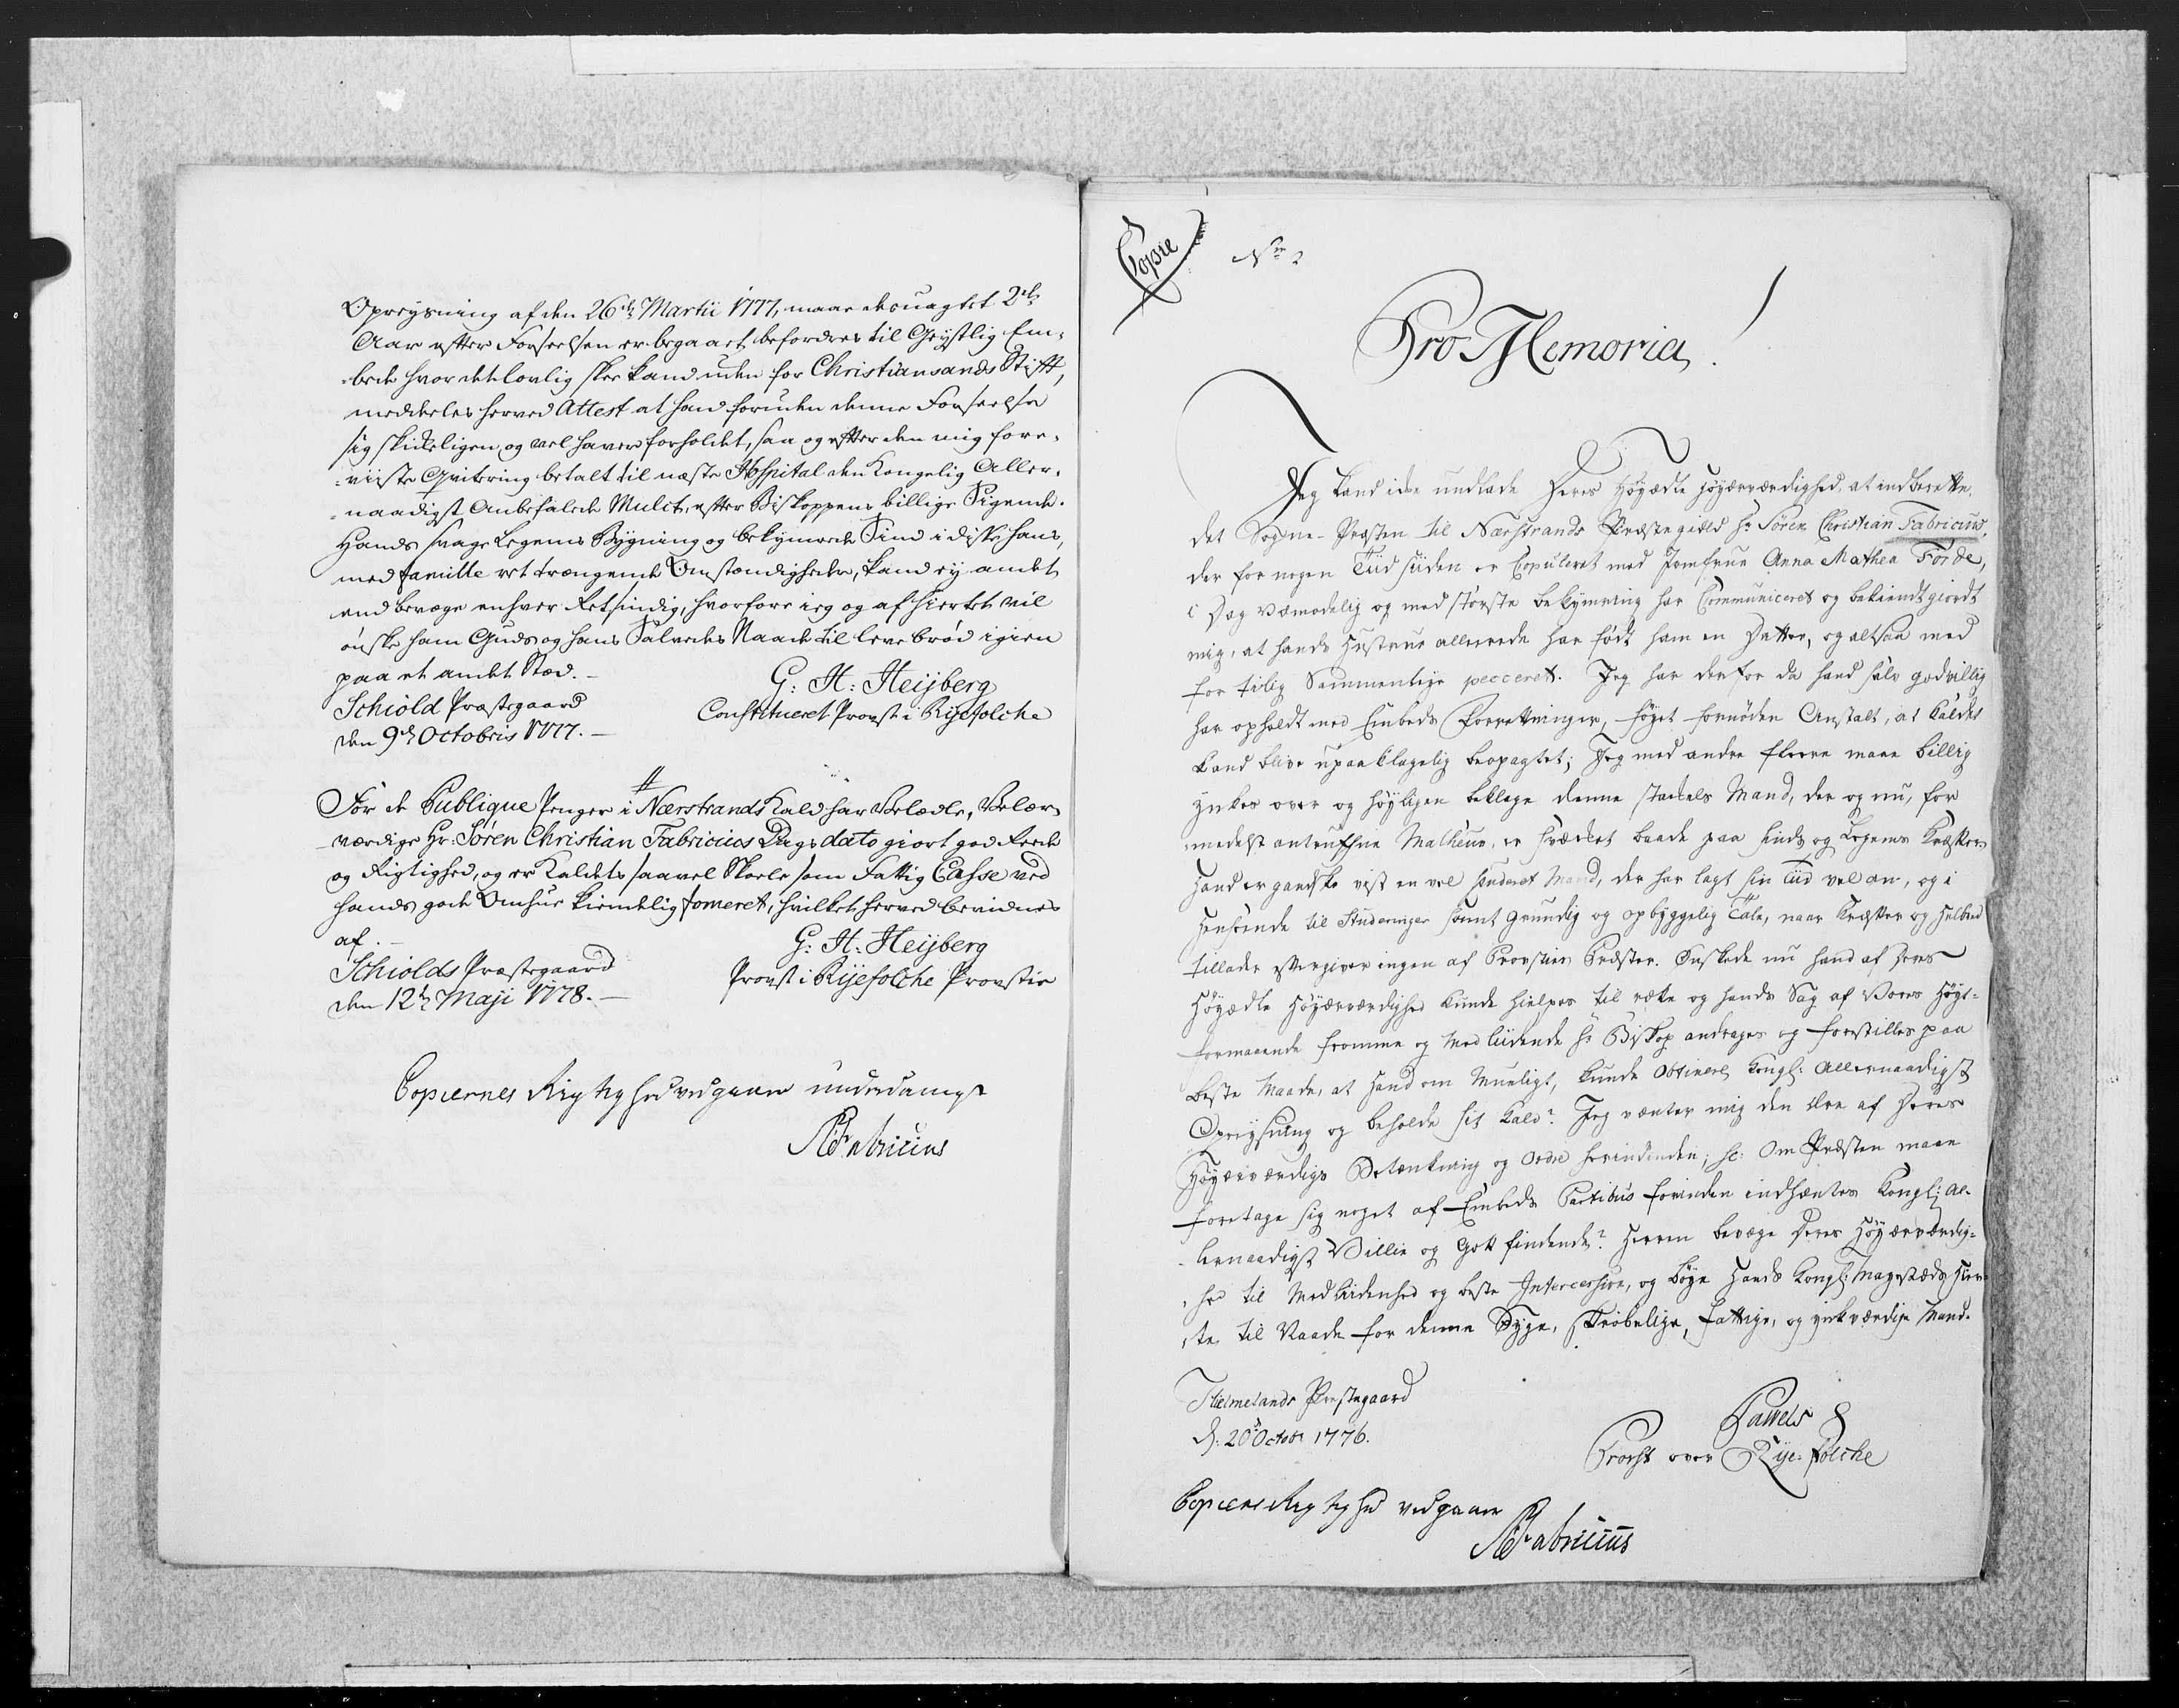 Opreysning af den 26de Martii 1777, maae desuagtet 2de
Aar efter Forseelsen er begaaet befordres til Geystlig Em-
bede hvor det lovlig skee kand uden for Christiansands Stift,
meddeeles herved Attest at hand foruden denne Forseelse
sig skikkeligen og vel haver forholdet, saa og efter den mig fore-
viiste Qvitering betalt til næste Hospital den Kongelig Aller-
naadigst Anbefalede Mulct, efter Biskoppens billige Sigende.
Hands svage Legems Bygning og bekymrede Sind i disse hans,
med familie ret trængende Omstændigheder, kand ey andet
end bevæge enhver Retsindig, hvorfore ieg og af Hiertet vil
ønske ham Guds og hans Salvedes Naade til leve brød igien
paa et andet Stæd.
G: H: Heijberg
Schiold Præstegaard
Constitueret Provst i Ryefolche
den 9de Octobris 1777.
For de Publique Penger i Nerstrands Kald har Velædle, Velær-
værdige Hr: Søren Christian Fabricius Dags dato giort god Reede
og Rigtighed, og er Kaldets saavel Skole som Fattig Casse ved
hands gode Omhue kiendelig fomeret, hvilket herved bevidnes
af.
G: H: Heijberg
Schiolds Præstegaard
Provst i Ryefolche Provstie
den 12te Maji 1778.
Copiernes Rigtighed vedgaaer underdanigst
SCFabricius
Copie
No 2
Pro Memoria!
Jeg kand icke undlade Deres Høyædle Høyærværdighed, at indberette,
det Sogne-Præsten til Nærstrands Præstegield Hr Sören Christian Fabricius,
der for nogen Tiid siden er Copuleret med Jomfrue Anna Mathea Förde,
i Dag væmodelig og med störste bekymring har Communiceret og bekiendtgiordt
mig, at hands Hustrue allerede har född ham en Datter, og altsaa med
for tiilig Sammenleye pecceret. Jeg har derfor da hand sælv godvillig
har opholdt med Embeds Forretninger, föyet fornöden Anstalt, at Kaldet
kand blive upaaklagelig beopagtet; Jeg med andre fleere maae billig
ynkes over og höyligen beklage denne stackels Mand, der og nu, for
medelst antrufne Malheur, er svæcket baade paa Sinds og Legems Kræfter
Hand er gandske vist en vel studeret Mand, der har lagt sin Tiid vel an, og i
Henseende til Studeringer samt grundig og opbyggelig Tale, naar Kræfter og Helbred
tillader eftergiver ingen af Provstiets Præster. Önskede nu hand af Deres
Høyædle Høyærværdighed kunde hielpes til rætte og hands Sag af Vores Høyt-
formaaende fromme og Medliidende Hr Biskop andrages og forestilles paa
beste Maade, at Hand om Mueligt, kunde obtinere Kongl: Allernaadigst
Opreysning og beholde sit Kald? Jeg venter mig den Ære af Deres
Høyærværdigs Betænkning og Ordre herindenden; sc: Om Præsten maae
foretage sig noget af Embeds Partibus forinden indhæntes Kongl: Al-
lernaadigst Villie og Gott findende? Herren bevæge Deres Høyærværdig-
hed til Medlidenhed og beste Intercession, og böye Hands Kongl: Mayestæds Hier-
te til Naade for denne Syge, skröbelige, fattige, og ynkværdige Mand.
Hielmelands Præstegaard
d: 20de Octobr 1776.
Pawels
Provst over Rye-folche
Copiens Rigtighed vedgaaer
SCFabricius